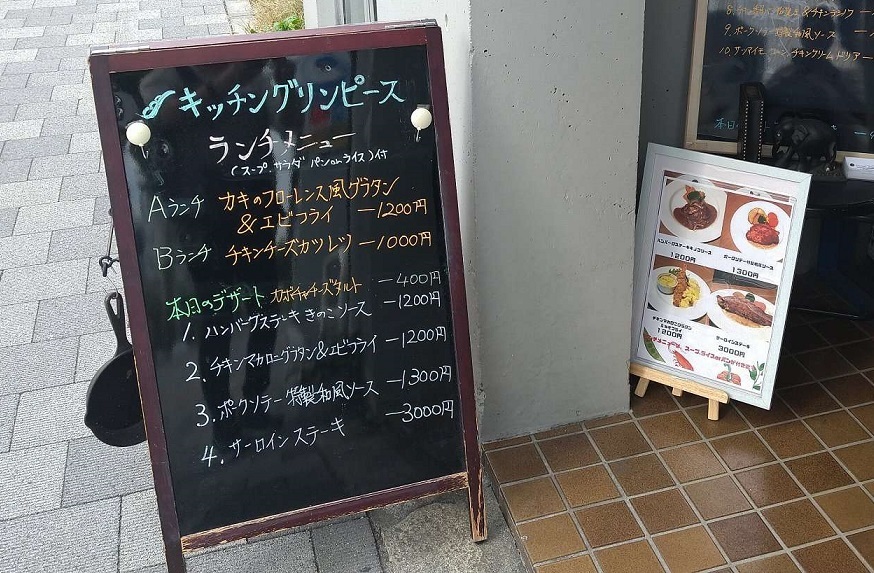 キッチングリンピース
ランチメニュー
(スープ.サラダ パンorライス)付
Aランチ カキのフローレンス風グラタン
&エビフライ —1200円
Bランチ チキンチーズカツレツ —1000円
本日のデザート カボチャチーズタルト —400円
1. ハンバーグステーキ きのこソース —1200円
2. チキンマカロニグラタン&エビフライ —1200円
3. ポークソテー 特製和風ソース —1300円
4. サーロインステーキ —3000円
9. ポークソテー 特製和風ソース
10.
本日
ハンバーグステーキキノコソース
1200円
ポークソテー特製和風ソース
1300円
チキンマカロニグラタン
&エビフライ
1200円
サーロインステーキ
3000円
スープ、ライスorパンが付き